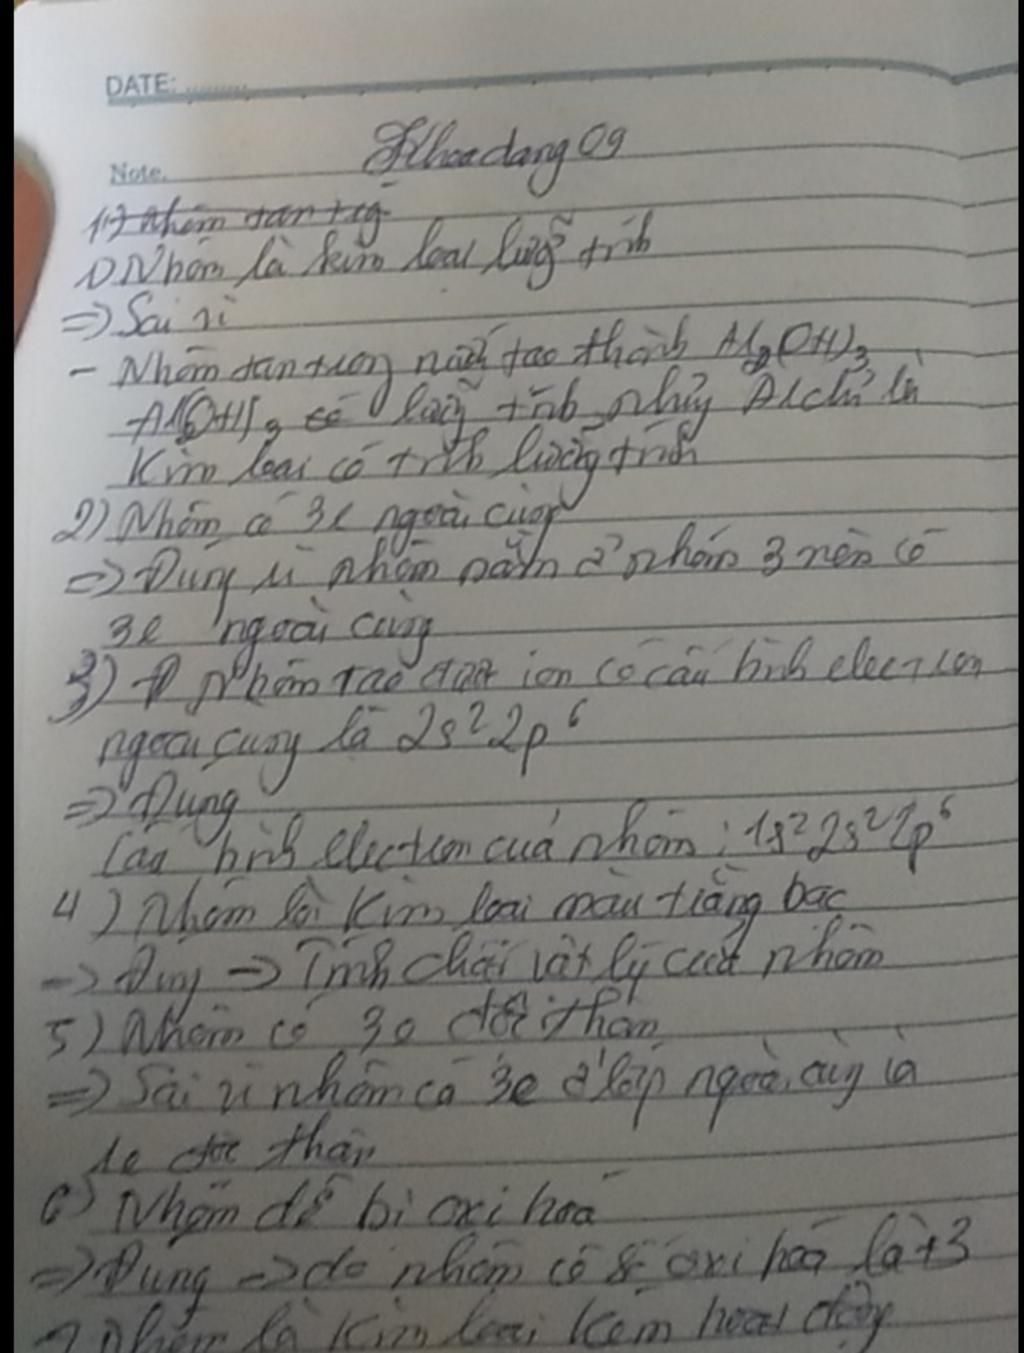 DATE:
Note.
Khoa dang 09
1) Nhôm tan tro
1) Nhôm là kim loại lưỡng tính
=> Sai vì
- Nhôm tan trong nước tạo thành Al2(OH)3
Al(OH)3 có lưỡng tính, nhưng Al chỉ là
Kim loại có tính lưỡng tính
2) Nhôm có 3e ngoài cùng
=> Đúng vì nhôm nằm ở nhóm 3 nên có
3e ngoài cùng
3) Nhôm tạo ion có cấu hình electron
ngoài cùng là 2s² 2p⁶
=> Đúng
Cấu hình electron của nhôm : 1s² 2s² 2p⁶
4) Nhôm là kim loại màu trắng bạc
-> Đúng -> Tính chất vật lý của nhôm
5) Nhôm có 3e độc thân
=> Sai vì nhôm có 3e ở lớp ngoài cùng là
1e độc thân
6) Nhôm dễ bị oxi hoá
=> Đúng -> do nhôm có oxi hoá là +3
7 Nhôm là kim loại kém hoạt động